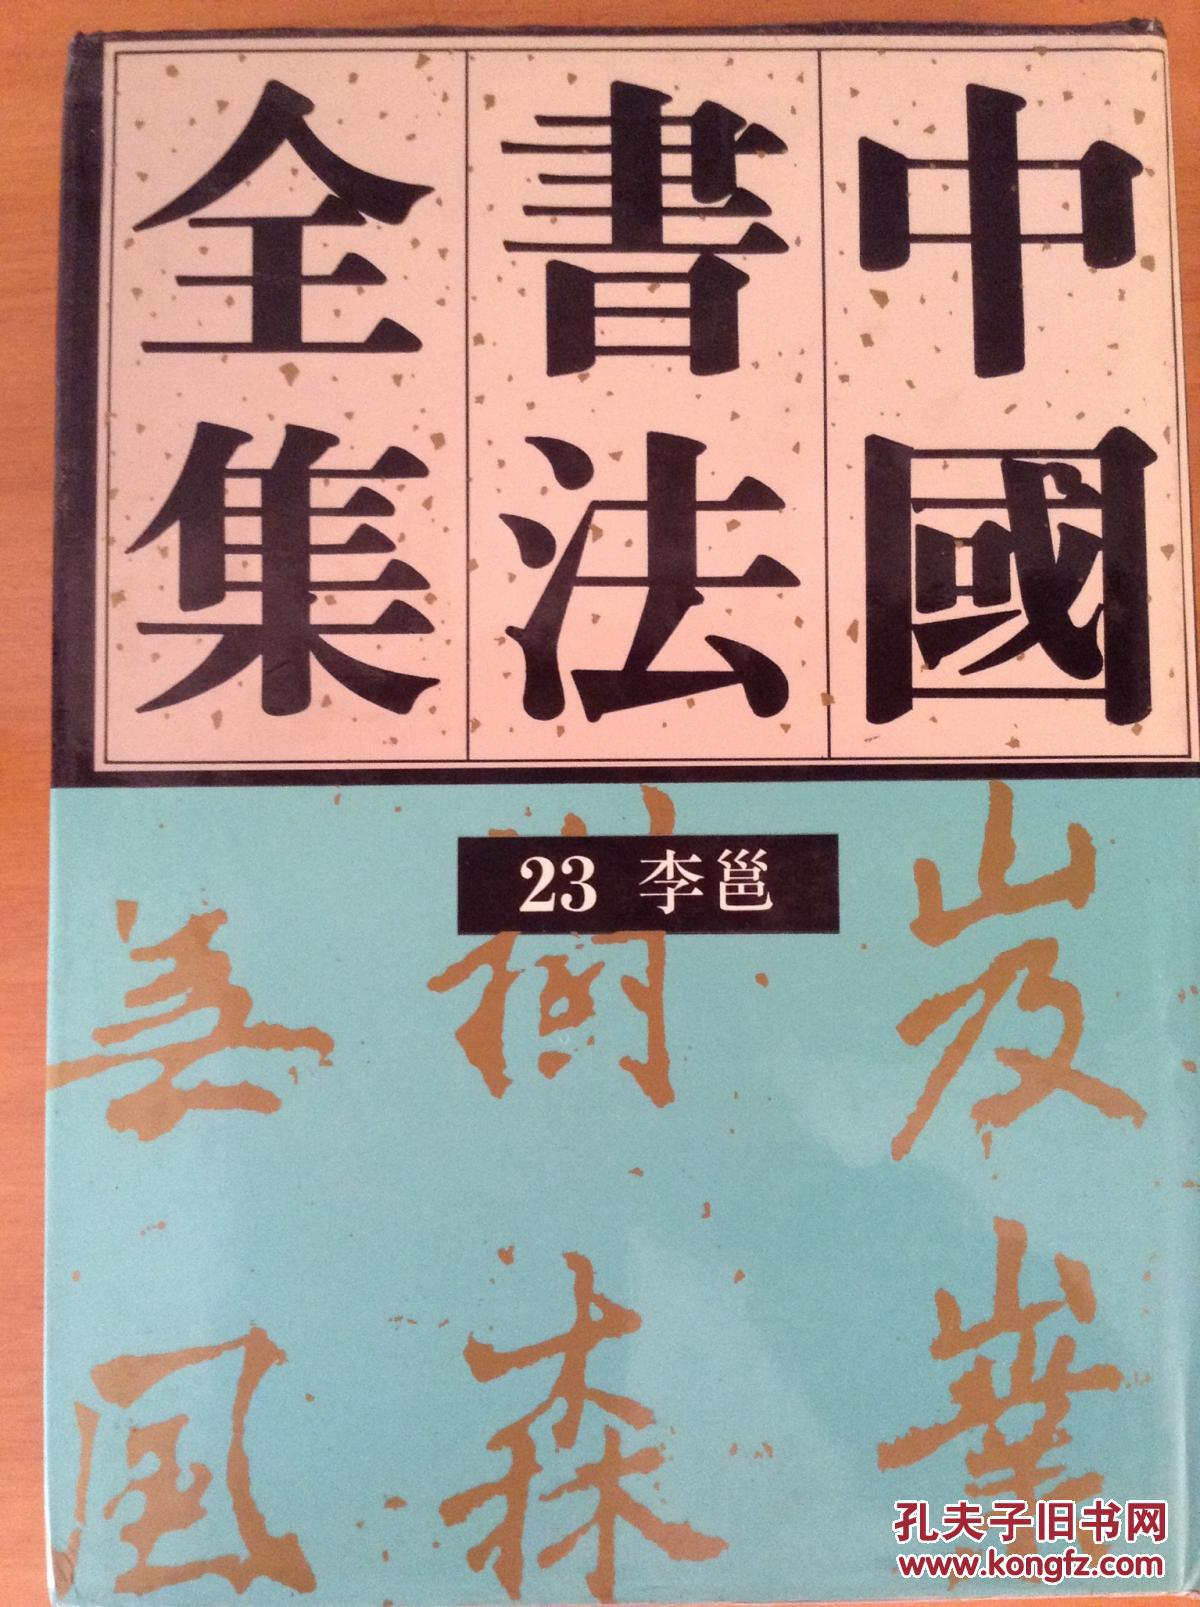 中國
書法
全集
23 李邕
岌嶪
樹森
善風
孔夫子旧书网
www.kongfz.com